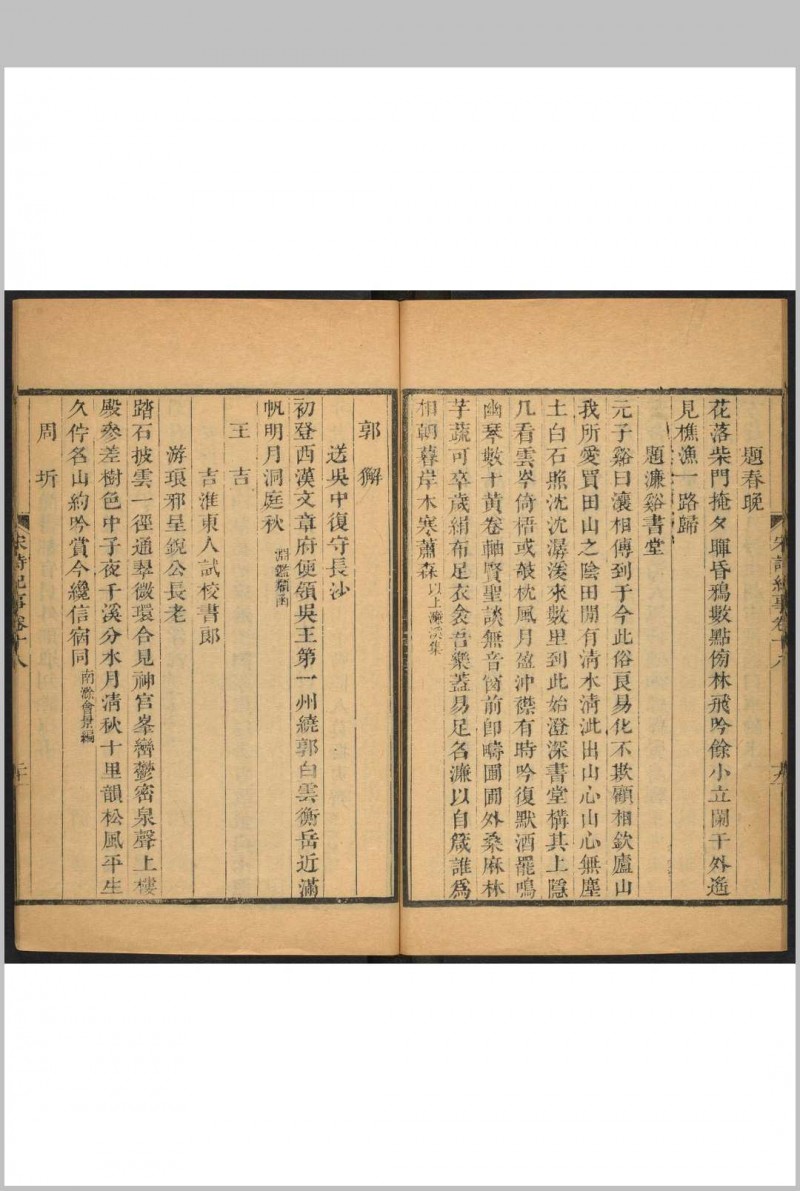 題春晚
花落柴門掩夕暉昏鴉數點傍林飛吟餘小立闌干外遙
見樵漁一路歸
題濂谿書堂
元子谿曰瀼相傳到于今此俗良易化不欺顧相欽廬山
我所愛買田山之陰田閒有清水清泚出山心山心無塵
土白石照沈沈潺湲來數里到此始澄深書堂構其上隱
几看雲岑倚梧或敧枕風月盈沖襟有時吟復默酒罷鳴
幽琴數十黃卷軸賢聖談無音窗前即疇圃圃外桑麻林
芋蔬可卒歲絹布足衣衾吾樂蓋易足名濂以自箴誰爲
相朝暮岸木寒蕭森以上濂溪集
宋詩紀事卷十八
郭獬
送吳中復守長沙
初登西漢文章府便領吳王第一州繞郭白雲衡岳近滿
帆明月洞庭秋淵鑑類函
王吉
吉淮東人試校書郎
游瑯邪呈銳公長老
踏石披雲一徑通翠微環合見神宮峯巒鬱密泉聲上樓
殿參差樹色中子夜千溪分水月清秋十里韻松風平生
久佇名山約吟賞今纔信宿同南滁會景編
周圻
宋詩紀事卷十八
二十